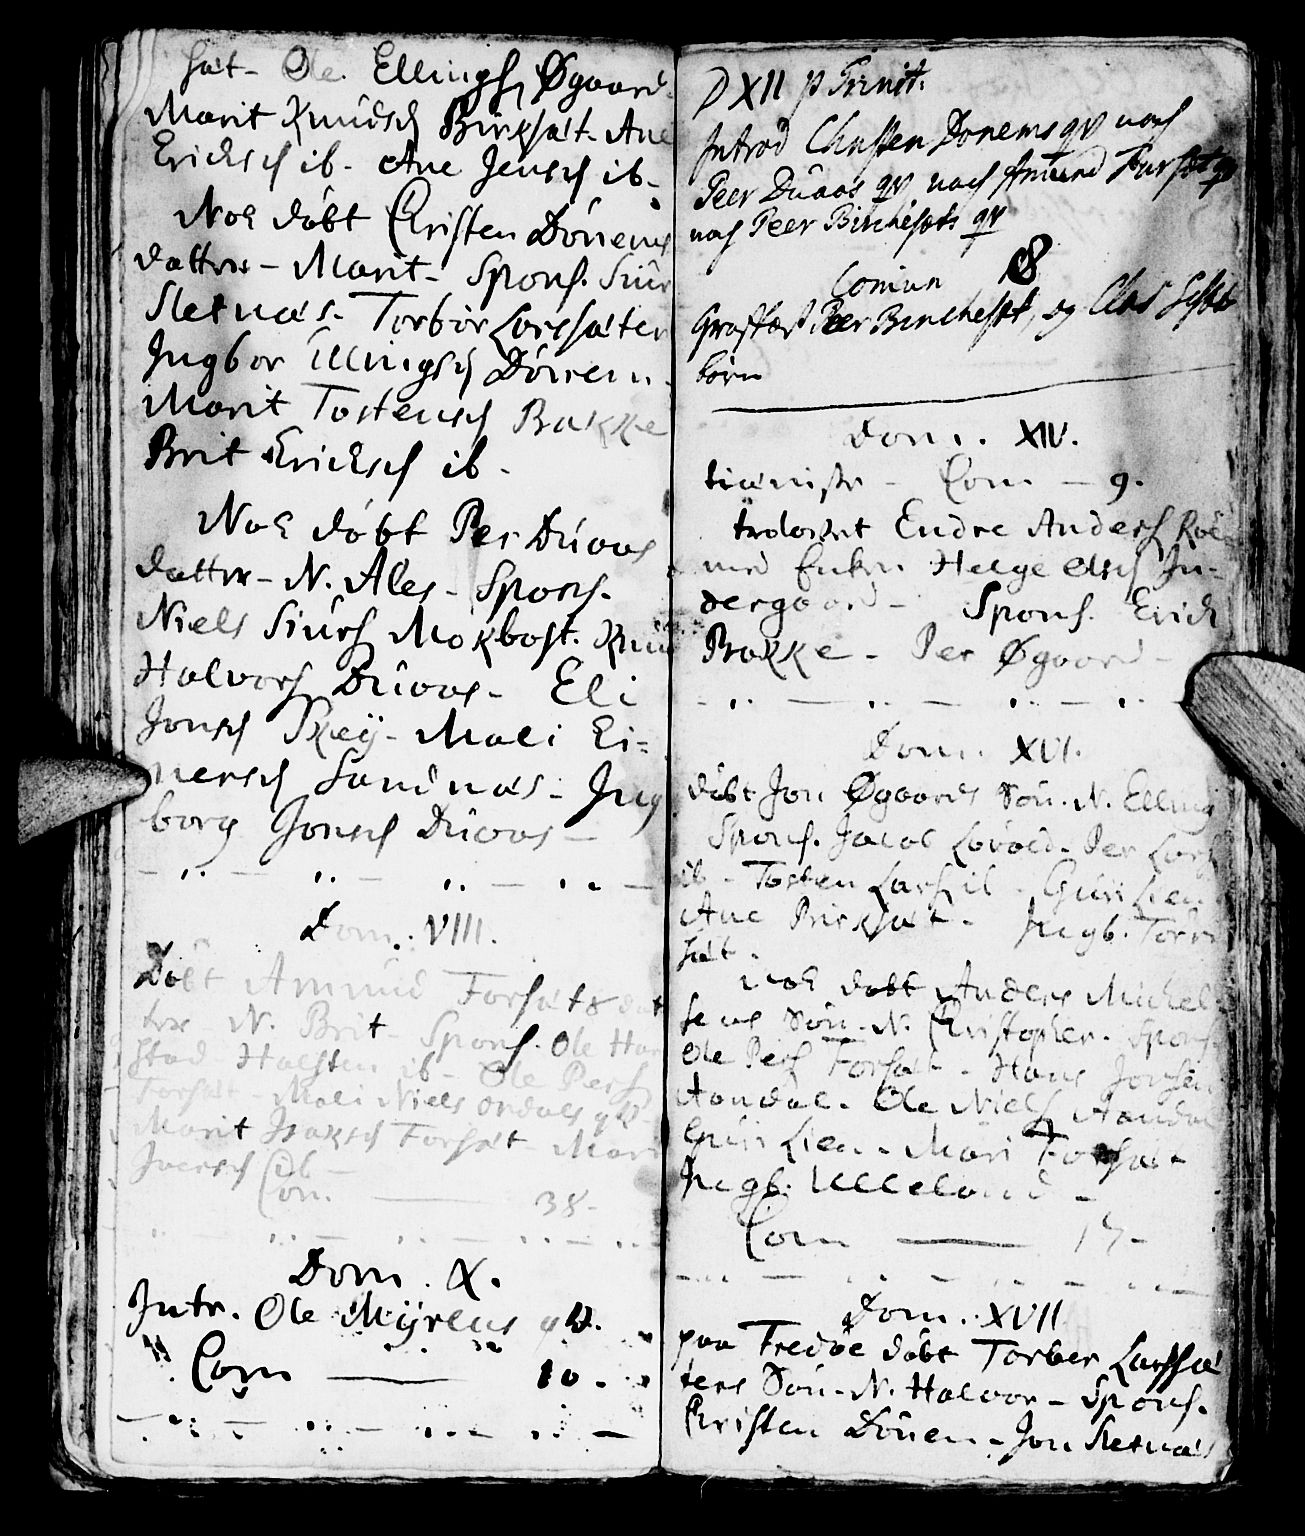 sæt - Ole Ellings Øgaard.
Marit Knudsd Birksæt - Ane
Ericksd ib - Ane Jensd ib -
Nok döbt Christen Dönems
datter - Marit - Spons. Siur
Sletnæs - Torbör Lorssæter
Ingbor Ellingsd Dönem -
Marit Tostensd Bakke
Brit Ericksd ib -
Nok döbt Per Duaas
datter - N. Ales - Spons.
Niels Siurs Mokbost. Knud
Halvors Duaas - Eli
Jonsd Mali Ei=
nersd Sandnæs - Ing
borg Jonsd Duaas -
Dom. VIII.
Döbt Amund Forsæts dat
ter - N. Brit - Spons. Ole Har
stad - Halsten ib - Ole Pers
Forsæt - Mali Niels Ordals qv -
Marit Isaksd Forsæt - Mari
Iversd ib -
Com. 38 -
Dom. X.
Intr. Ole Myrens qv.
Com 10 -
D XII p Trinit.
Introd Christen Donems qv noch
Peer Duaas qv noch Amund Fursæt qv
noch Peer Birchesets qv
Comun 8
Graffæst Peer Bircheset, og
börn
Dom. XIV.
Com - 9.
trolovet Endre Anders
med Enken Helge Olsd In-
dergaard - Spons. Erick
Bakke - Per Øgaard -
Dom. XVI.
döbt Jon Øgaards Sön - N. Elling
Spons. Jacob Lovold - Per Lars
ib - Tosten Lars ib - Guri Lien
Ane Birksæt - Ingb. Torri
sæt -
Nok döbt Anders Mickel-
sens Sön - N. Christopher - Spons.
Ole Pers Forsæt - Hans Jonsen
Aandal - Ole Niels Aandal
Guri Lien - Mari Forsæt -
Ingb. Ulleland -
Com 17 -
Dom. XVII
paa Fredöe döbt Torber Larssæ
ters Sön - N. Halvor - Spons.
Christen Dönem - Jon Sletnæs